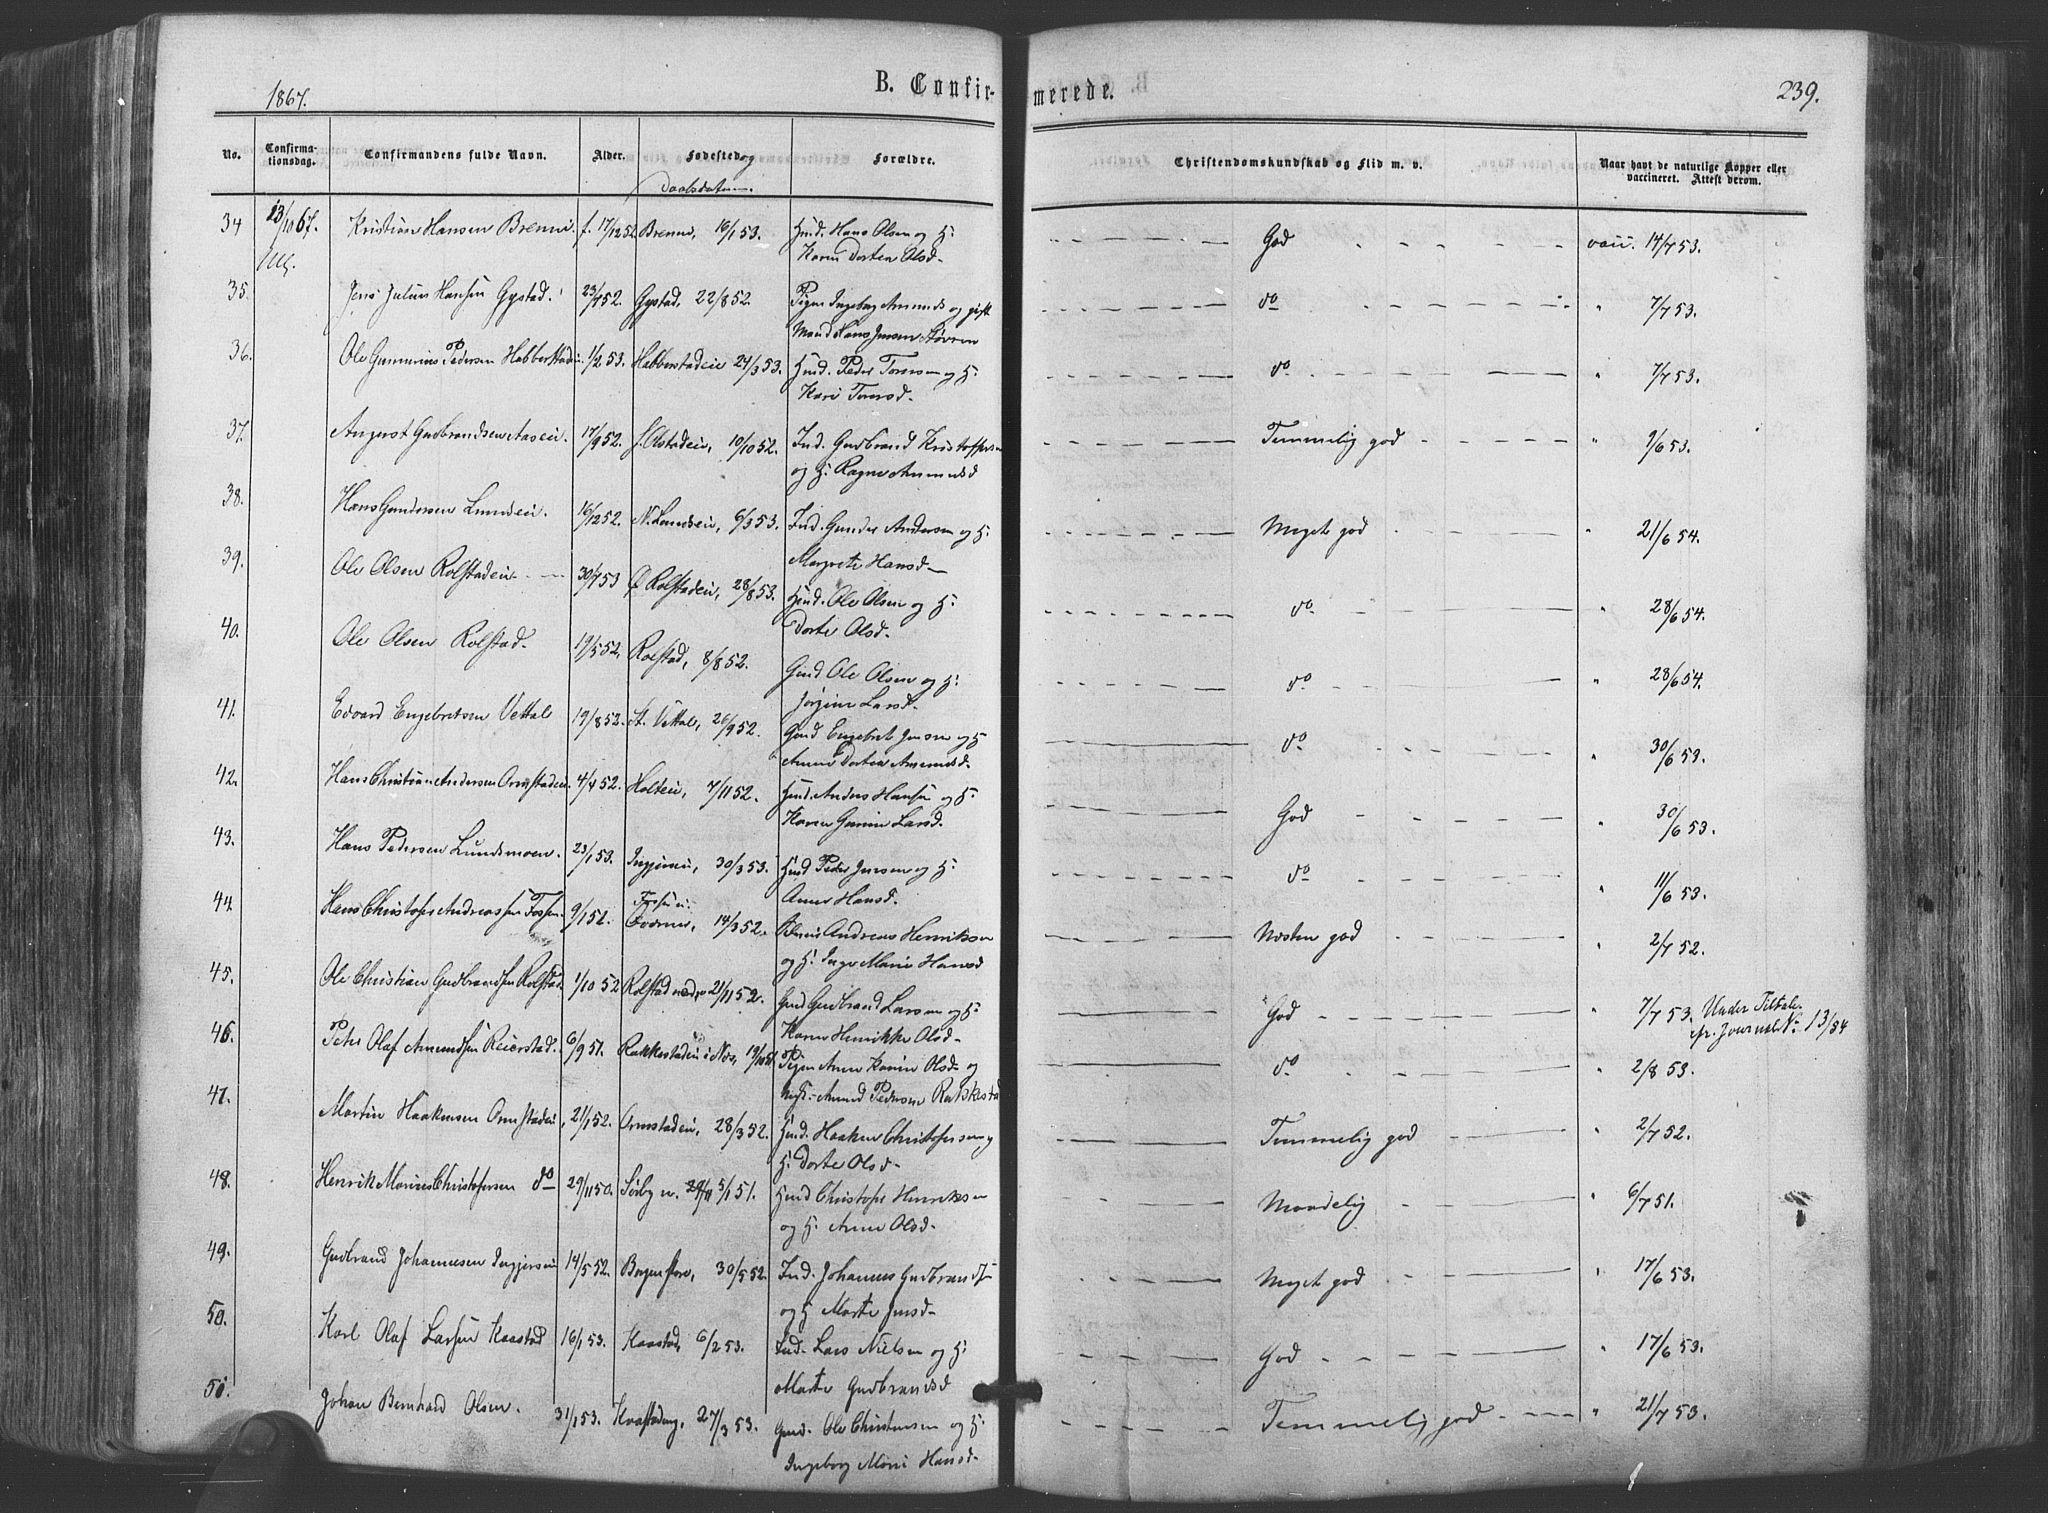 1867.
B. Confirmerede.
239.
No. Confirmationsdag. Confirmandens fulde Navn. Alder. Fødested og Daabsdatum. Forældre. Christendomskundskab og Flid m. v. Naar havt de naturlige Kopper eller vaccineret. Attest derom.
34 13/10 67. Kristian Hansen Brenni f. 17/12 52 Brenni, 16/1 53. Hmd. Hans Olsen og H: God vacc. 14/7 53.
Karen Dorten Olsd.
35. Jens Julius Hansen Gystad. 23/7 52. Gystad. 22/8 52. Pigen Ingeborg Amunds og gift do " 7/7 53.
Mand Hans Jensen Støvren
36. Ole Gunnerius Pedersen Habberstadei. 1/2 53. Habberstadeie 24/3 53. Hmd. Peder Toresen og H: do " 7/7 53.
Kari Toresd.
37. August Gudbrandsen Aasei. 17/9 52. 10/10 52. Ind. Gudbrand Kristoffersen Temmelig god " 9/6 53.
og H: Ragne Amundsd
38. Hans Gundersen Lundeei. 16/12 52. N. Lundeei, 6/3 53. Ind. Gunder Andersen og H: Meget god " 21/6 54.
Margrete Hansd
39. Ole Olsen Rolstadeie 30/7 53 Ø Rolstadeie, 28/8 53. Hmd. Ole Olsen og H: do " 28/6 54.
Dorte Olsd.
40. Ole Olsen Rolstad. 19/5 52. Rolstad, 8/8 52. Gmd Ole Olsen og H: do " 28/6 54.
Jørgine Larsd.
41. Edvard Engebretsen Vettal 19/8 52. St. Vettal, 26/9 52. Gmd Engebret Jensen og H do " 30/6 53.
Anne Dortea Amundsd.
42. Hans Christian Andersen Ormstadeie. 4/4 52. Holteie, 7/11 52. Hmd. Anders Hansen og H: God " 30/6 53.
Karen Gurine Larsd.
43. Hans Pedersen Lundsmoen. 23/1 53. 30/3 53. Hmd Peder Jensen og H: do " 11/6 53.
Anne Hansd.
44. Hans Christofer Andreassen Fossen 9/1 52. 14/3 52. Andreas Henriksen Næsten god " 2/7 52.
og H: Inge Marie Hansd
45. Ole Christian Gudbrandsen Rolstad. 1/10 52 Rolstad nedre 21/11 52. Gmd Gudbrand Larsen og H: God " 7/7 53. Under Tiltale
Karen Henrikke Olsd. cfr. Journal No 13/84
46. Peter Olaf Amundsen Reierstad. 6/9 51. Rakkestadei i Næs, Pigen Anne Karine Olsd og do " 2/8 53.
Amund Pedersen Rakkestad
47. Martin Haakensen Ormstadeie, 21/1 52. Ormstadeie, 28/3 52. Hmd. Haaken Christofersen og Temmelig god " 2/7 52.
H: Dorte Olsd.
48. Henrik Marius Christofersen do 29/11 50. Sørby 5/1 51. Hmd Christofer Henriksen Maadelig " 6/7 51.
og H: Anne Olsd.
49. Gudbrand Johannesen Ingjersei 14/5 52. 30/5 52. Ind. Johannes Gudbrands Meget god " 17/6 53.
og H Marte Jensd
50. Karl Olaf Larsen Kaastad 16/1 53. Kaastad, 6/2 53. Ind. Lars Nielsen og H: God " 17/6 53.
Marte Gudbrandsd
51. Johan Bernhard Olsen. 31/1 53. 27/3 53. Gmd. Ole Christensen og H: Temmelig god " 21/7 53.
Ingeborg Marie Hansd.